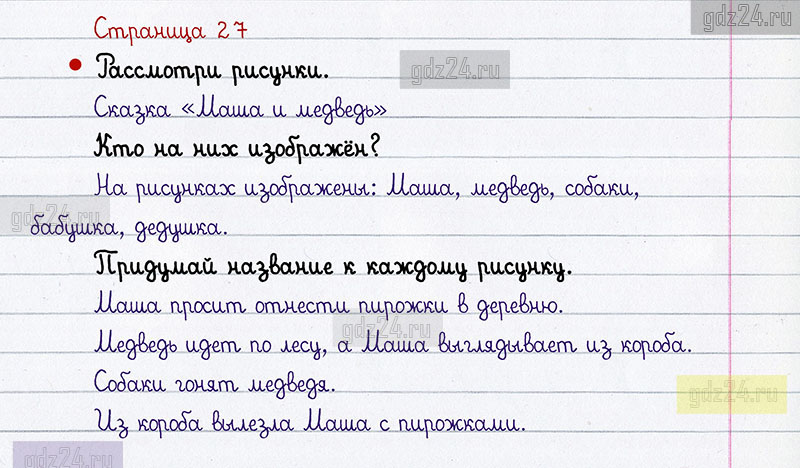 gdz24.ru
Страница 27
• Рассмотри рисунки.
gdz24.ru
Сказка «Маша и медведь»
Кто на них изображён?
На рисунках изображены: Маша, медведь, собаки,
gdz24.ru
бабушка, дедушка.
Придумай название к каждому рисунку.
Маша просит отнести пирожки в деревню.
gdz24.ru
Медведь идет по лесу, а Маша выглядывает из короба.
Собаки гонят медведя.
gdz24.ru
Из короба вылезла Маша с пирожками.
gdz24.ru